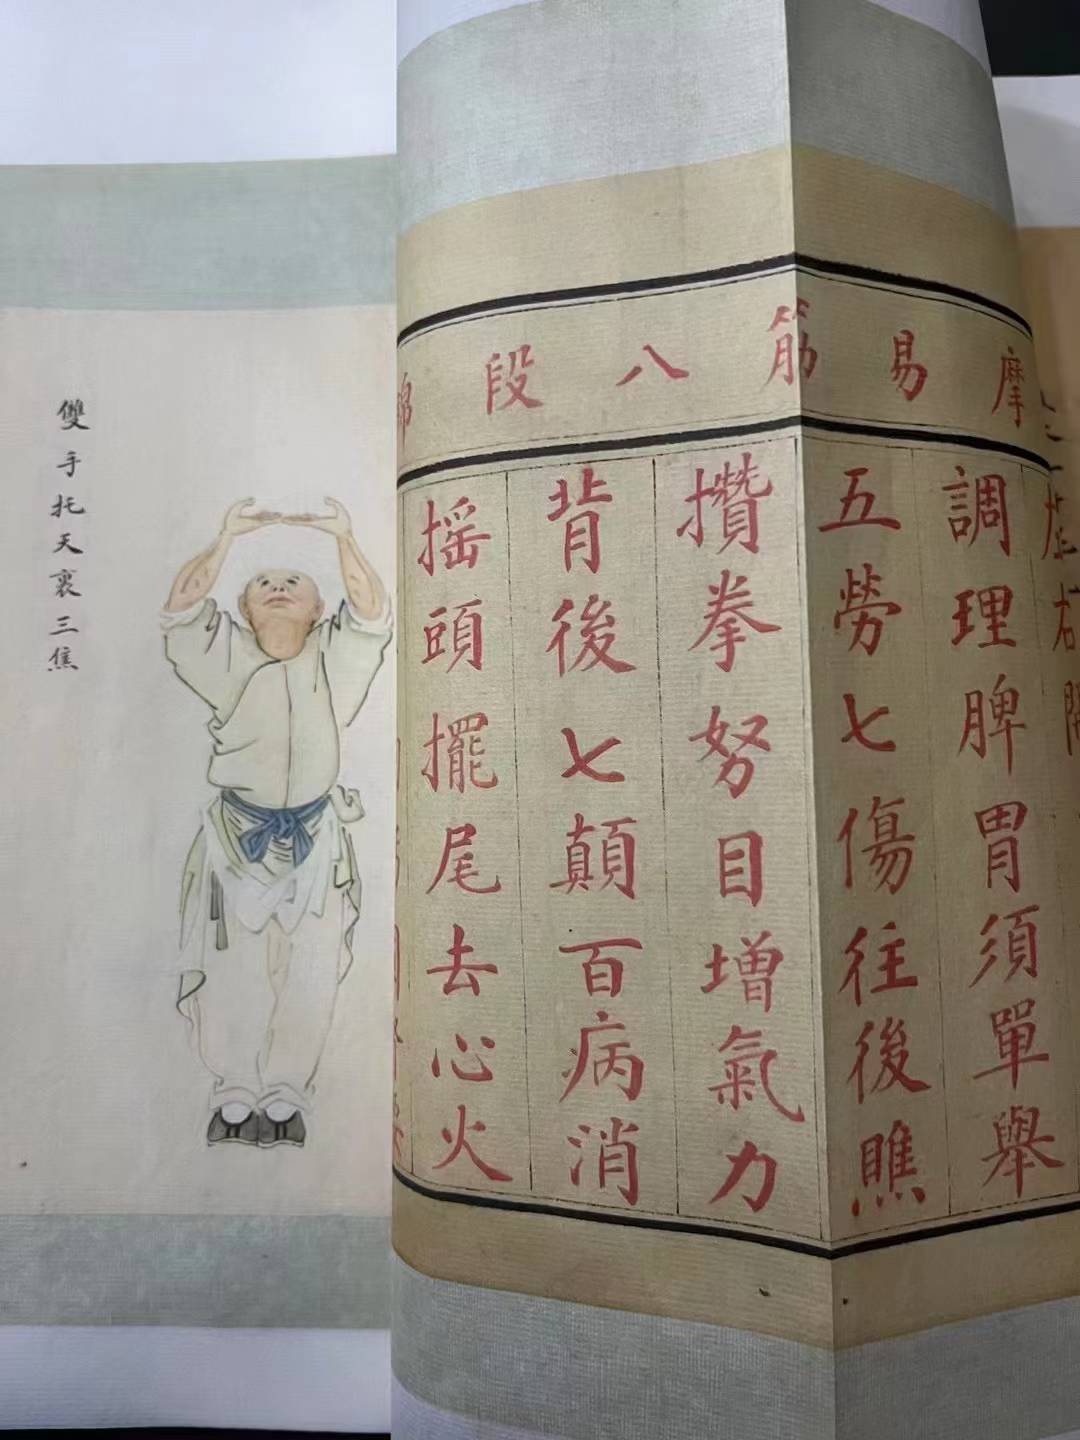 摩易筋八段錦
右開
調理脾胃須單舉
五勞七傷往後瞧
攢拳努目增氣力
背後七顛百病消
摇頭擺尾去心火
雙手托天裏三焦